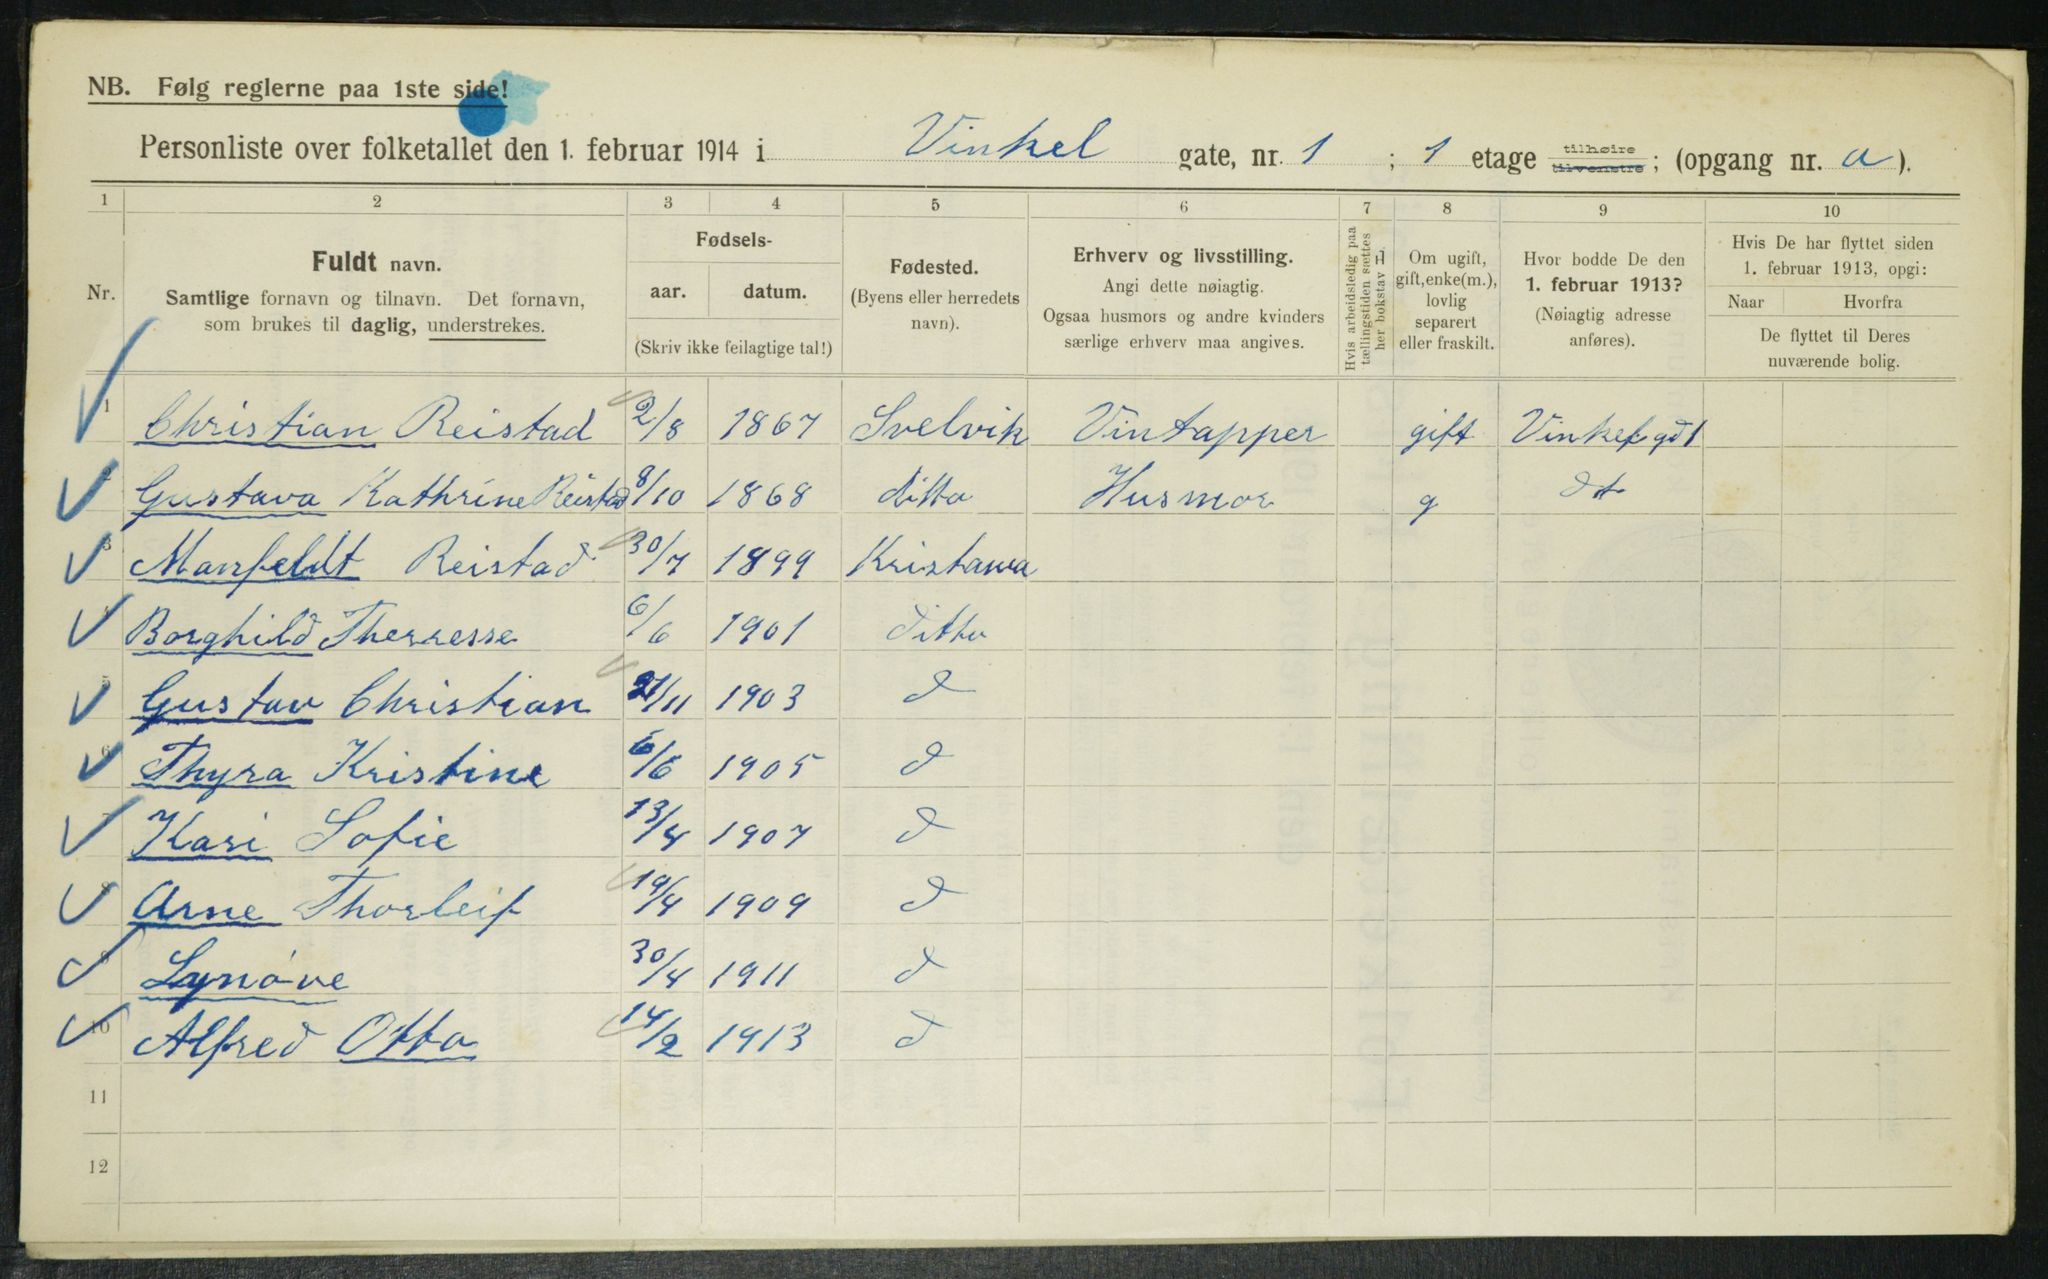 NB. Følg reglerne paa 1ste side!
Personliste over folketallet den 1. februar 1914 i Vinkel gate, nr. 1 ; 1 etage tilhøire tilvenstre ; (opgang nr. a ).
1 2 3 4 5 6 7 8 9 10
Nr.
Fuldt navn.
Samtlige fornavn og tilnavn. Det fornavn,
som brukes til daglig, understrekes.
Fødsels-
aar. datum.
(Skriv ikke feilagtige tal!)
Fødested.
(Byens eller herredets
navn).
Erhverv og livsstilling.
Angi dette nøiagtig.
Ogsaa husmors og andre kvinders
særlige erhverv maa angives.
Hvis arbeidsledig paa
tællingstiden sættes
her bokstav L.
Om ugift,
gift, enke(m.),
lovlig
separert
eller fraskilt.
Hvor bodde De den
1. februar 1913?
(Nøiagtig adresse
anføres).
Hvis De har flyttet siden
1. februar 1913, opgi:
Naar Hvorfra
De flyttet til Deres
nuværende bolig.
1 Christian Reistad 2/8 1867 Svelvik Vintapper gift Vinkelgd 1
2 Gustava Kathrine Reistad 8/10 1868 ditto Husmor g dt
3 Manfeldt Reistad 30/7 1899 Kristania
4 Borghild Therresse 6/6 1901 ditto
5 Gustav Christian 21/11 1903 d
6 Thyra Kristine 6/6 1905 d
7 Kari Sofie 13/4 1907 d
8 Arne Thorleif 19/4 1909 d
9 Synóve 30/4 1911 d
10 Alfred Otto 14/2 1913 d
11
12